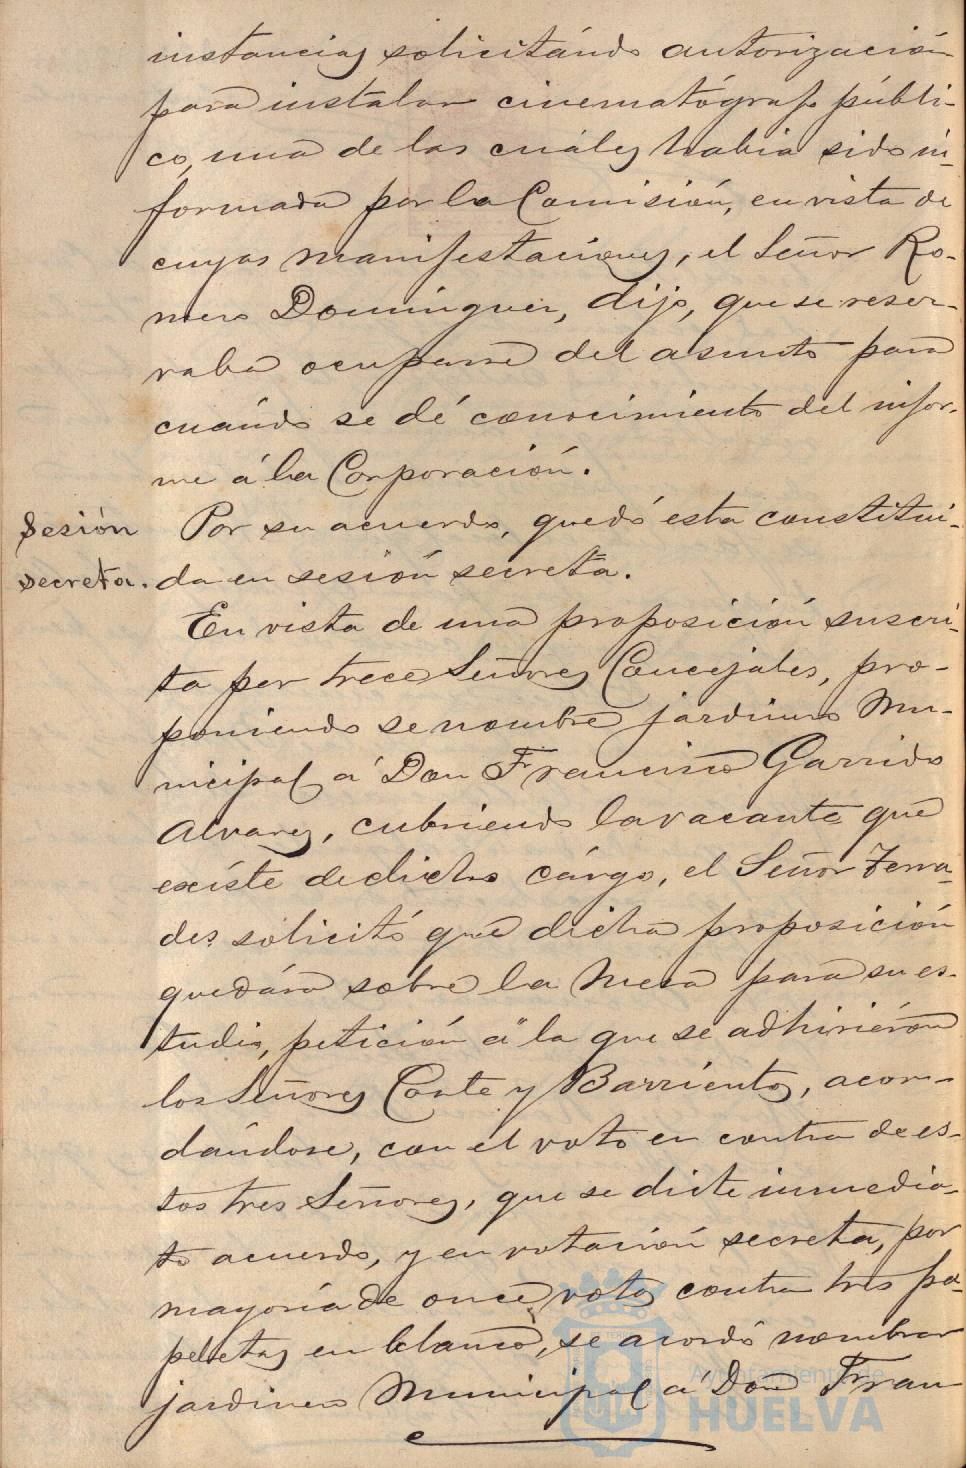 instancias solicitándo autorización
para instalar cinematógrafo públi-
co, una de las cuáles habia sido in-
formada por la Comisión, en vista de
cuyas manifestaciones, el Señor Ro-
mero Dominguez, dijo, que se reser-
vaba ocuparse del asunto para
cuándo se dé conocimiento del infor-
me á la Corporación.
Sesión
secreta.
Por su acuerdo, quedó esta constitui-
da en sesión secreta.
En vista de una proposición suscri-
ta por trece Señores Concejales, pro-
poniendo se nombre jardinero Mu-
nicipal a Don Francisco Garrido
Alvarez, cubriendo la vacante que
exíste de dicho cárgo, el Señor Terra-
des solicitó que dicha proposición
quedára sobre la Mesa para su es-
tudio, petición á la que se adhiriéron
los Señores Corte y Barrientos, acor-
dándose, con el voto en contra de es-
tos tres Señores, que se dicte inmedia-
to acuerdo, y en votación secreta, por
mayoría de once votos contra tres pa-
peletas en blanco, se acordó nombrar
jardinero Municipal a Don Fran
Ayuntamiento de
HUELVA